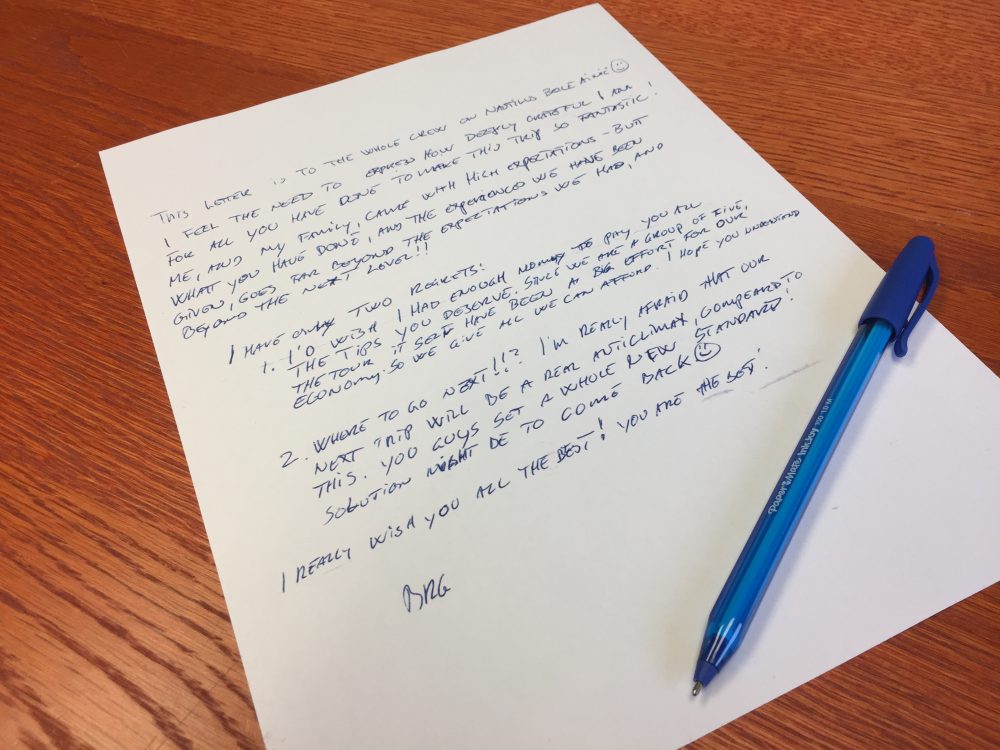 THIS LETTER IS TO THE WHOLE CREW ON NAUTILUS BELLE AMIE ☺
I FEEL THE NEED TO EXPRESS HOW DEEPLY GRATEFUL I AM
FOR ALL YOU HAVE DONE TO MAKE THIS TRIP SO FANTASTIC!
ME, AND MY FAMILY, CAME WITH HIGH EXPECTATIONS - BUT
WHAT YOU HAVE DONE, AND THE EXPERIENCES WE HAVE BEEN
GIVEN, GOES FAR BEYOND THE EXPECTATIONS WE HAD, AND
BEYOND THE NEXT LEVEL!!!
I HAVE ONLY TWO REGRETS:
1. I'D WISH I HAD ENOUGH MONEY TO PAY YOU ALL
THE TIPS YOU DESERVE. SINCE WE ARE A GROUP OF FIVE,
THE TOUR IT SELF HAVE BEEN A BIG EFFORT FOR OUR
ECONOMY. SO WE GIVE ALL WE CAN AFFORD. I HOPE YOU UNDERSTAND
2. WHERE TO GO NEXT!!!? I'M REALLY AFRAID THAT OUR
NEXT TRIP WILL BE A REAL ANTICLIMAX, COMPEARD TO
THIS. YOU GUYS SET A WHOLE NEW STANDARD!
SOLUTION MIGHT BE TO COME BACK ☺
I REALLY WISH YOU ALL THE BEST! YOU ARE THE BEST!
BRG
PaperMate InkJoy 100 1.0 M